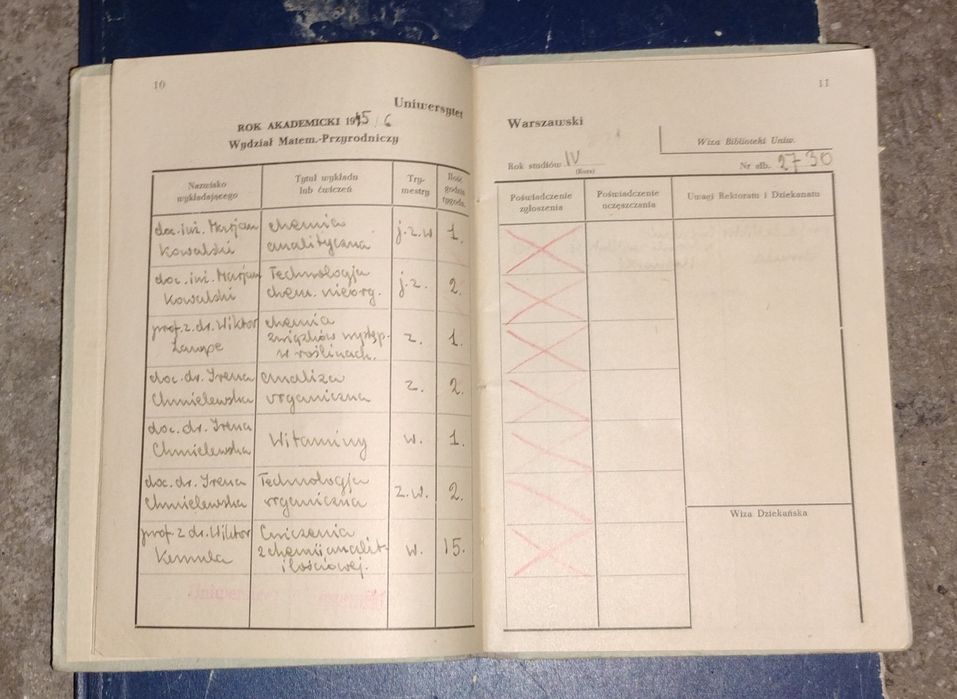 10
Uniwersytet
ROK AKADEMICKI 1945/6
Wydział Matem.-Przyrodniczy
Nazwisko wykładającego
Tytuł wykładu lub ćwiczeń
Try-mestry
Ilość godzin tygodn.
doc. inż. Marjan
Kowalski
chemia
analityczna
j.z.w
1.
doc. inż. Marjan
Kowalski
Technologja
chem. nieorg.
j.z.
2.
prof. z. dr. Wiktor
Lampe
chemia
związków występ.
w roślinach.
z.
1.
doc. dr. Irena
Chmielewska
analiza
organiczna
z.
2.
doc. dr. Irena
Chmielewska
Witaminy
w.
1.
doc. dr. Irena
Chmielewska
Technologja
organiczna
z.w.
2.
prof. z dr. Wiktor
Kemula
Ćwiczenia
z chemii analit-
ilościowej.
w.
15.
11
Warszawski
Wiza Biblioteki Uniw.
Rok studiów IV
(Kurs)
Nr alb. 2730
Poświadczenie
zgłoszenia
Poświadczenie
uczęszczania
Uwagi Rektoratu i Dziekanatu
Wiza Dziekańska